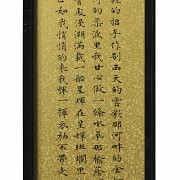 輕的招手作別西天的雲彩那河畔的金
的柔波里我甘心做一條水草那榆蔭
漫溯滿載一船星輝在星輝斑斕里
如我悄悄的來我揮一揮衣袖不帶走